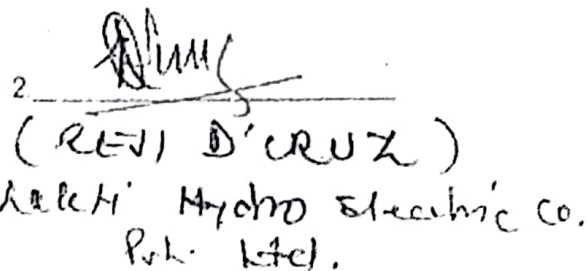 2.
(REJI D'CRUZ)
Hydro Electric Co.
Pvt. Ltd.